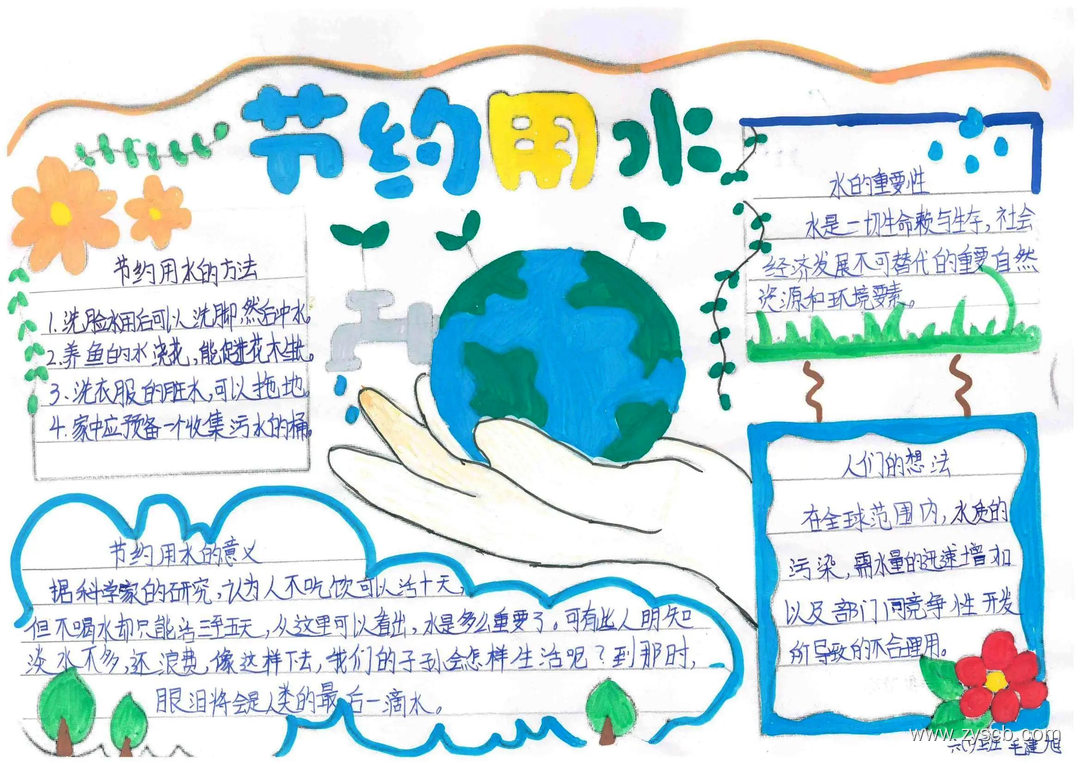 节约用水
节约用水的方法
1.洗脸水用后可以洗脚,然后冲水。
2.养鱼的水浇花,能促进花木生长。
3.洗衣服的脏水,可以拖地
4.家中应预备一个收集污水的桶。
水的重要性
水是一切生命赖与生存,社会
经济发展不可替代的重要自然
资源和环境要素。
节约用水的意义
据科学家的研究,认为人不吃饮可以活十天,
但不喝水却只能活三至五天,从这里可以看出,水是多么重要了。可有些人明知
淡水不多,还浪费,像这样下去,我们的子孙会怎样生活呢?到那时,
眼泪将会是人类的最后一滴水。
人们的想法
在全球范围内,水质的
污染,需水量的迅速增加
以及部门间竞争性开发
所导致的不合理用。
www.zyscb.com
班 毛建旭